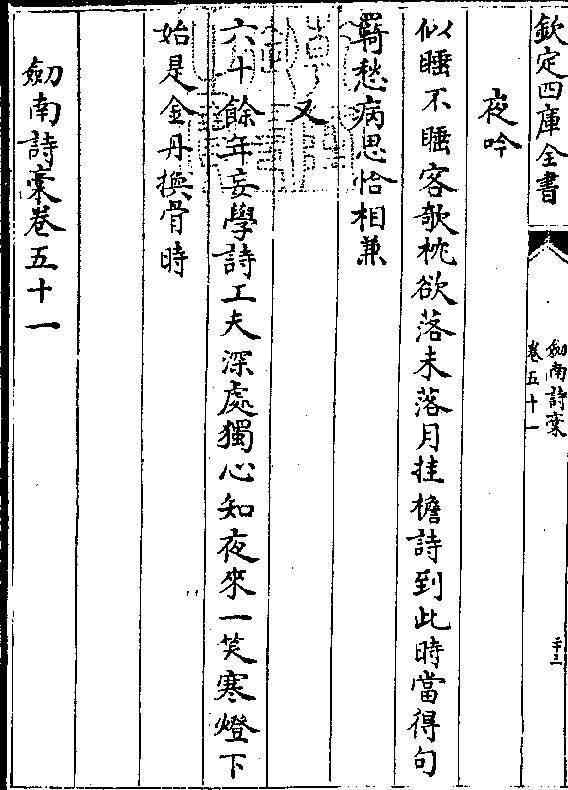 欽定四庫全書
劒南詩稾
卷五十一
二十三
夜吟
似睡不睡客欹枕欲落未落月挂檐詩到此時當得句
羇愁病思恰相兼
又
六十餘年妄學詩工夫深處獨心知夜來一笑寒燈下
始是金丹換骨時
劒南詩稾卷五十一